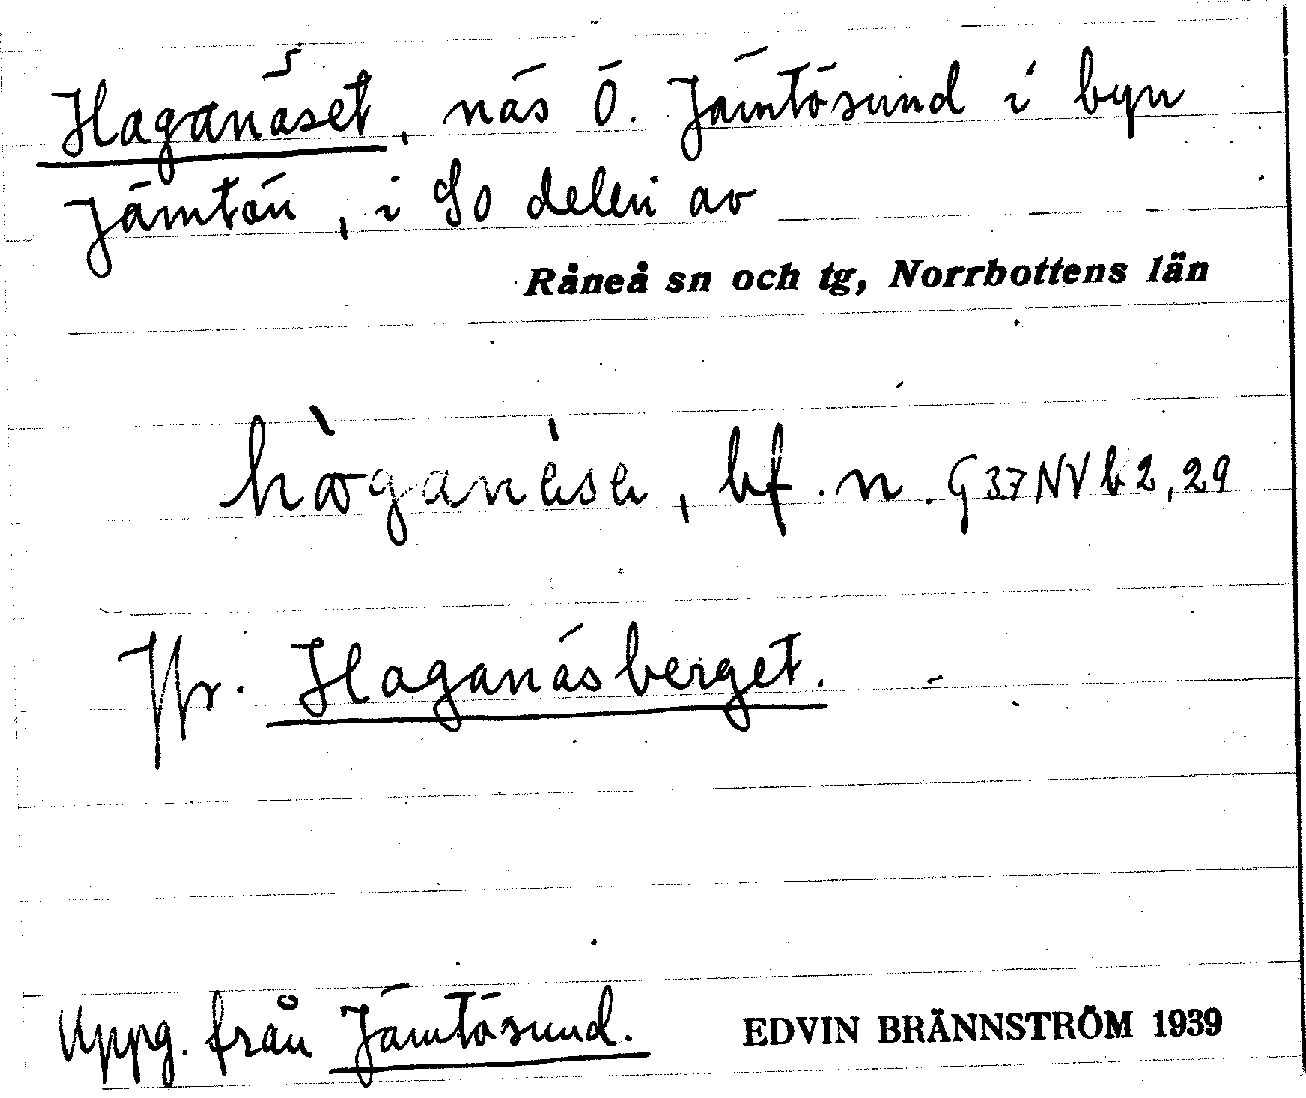 Haganäset, näs Ö. Jämtösund i byn
Jämtön, i So delen av
Råneå sn och tg, Norrbottens län
hòganèse, bf. n. G 37 NV b 2, 29
Jfr. Haganäsberget.
Uppg. från Jämtösund.
EDVIN BRÄNNSTRÖM 1939